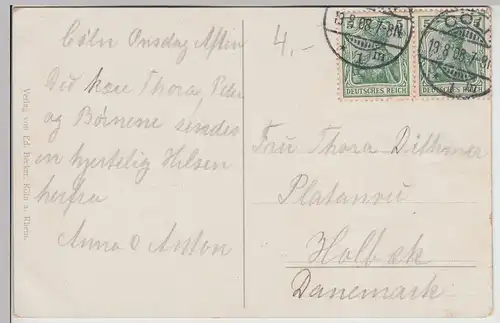 Cöln Onsdag Aften
Du kære Thora, Peter
og Børnene sendes
en hjertelig Hilsen
herfra
Anna & Anton
4,-
Verlag von Ed. Becker, Köln a. Rhein.
CÖLN
19.8.08.7-8N.
19.8.08.7-8N.
5
5
DEUTSCHES REICH
DEUTSCHES REICH
Fru Thora Dithmer
Platanvei
Holbæk
Danemark